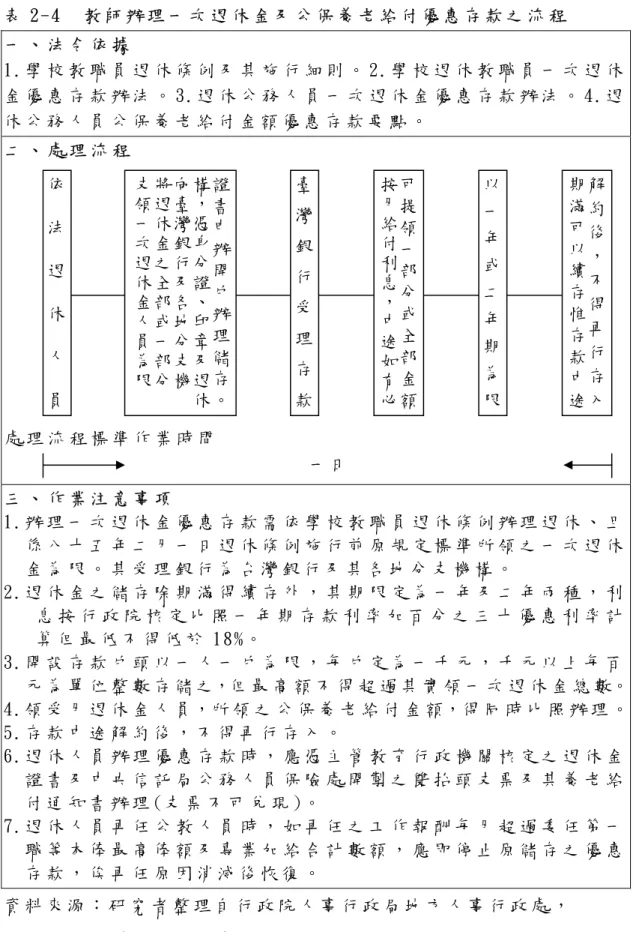 表 2-4　教師辦理一次退休金及公保養老給付優惠存款之流程
一、法令依據
1.學校教職員退休條例及其施行細則。2.學校退休教職員一次退休
金優惠存款辦法。3.退休公務人員一次退休金優惠存款辦法。4.退
休公務人員公保養老給付金額優惠存款要點。
二、處理流程
依法退休人員
支領一次退休金人員為限
將退休金之全部或一部分
向臺灣銀行及各地分支機
構，憑身分證、印章及退休
證書由辦開戶辦理儲存。
臺灣銀行受理存款
按月給付利息，中途如有必
可提領一部分或全部金額
以一年或二年期為限
期滿可以續存惟存款中途
解約後，不得再行存入
處理流程標準作業時間
一日
三、作業注意事項
1.辦理一次退休金優惠存款需依學校教職員退休條例辦理退休、且
係八十五年二月一日退休條例施行前原規定標準所領之一次退休
金為限。其受理銀行為台灣銀行及其各地分支機構。
2.退休金之儲存除期滿得續存外，其期限定為一年及二年兩種，利
息按行政院核定比照一年期存款利率加百分之三十優惠利率計
算但最低不得低於 18%。
3.開設存款戶頭以一人一戶為限，每戶定為一千元，千元以上每百
元為單位整數存儲之，但最高額不得超過其實領一次退休金總數。
4.領受月退休金人員，所領之公保養老給付金額，得同時比照辦理。
5.存款中途解約後，不得再行存入。
6.退休人員辦理優惠存款時，應憑主管教育行政機關核定之退休金
證書及中央信託局公務人員保險處開製之雙抬頭支票及其養老給
付通知書辦理(支票不可兌現)。
7.退休人員再任公教人員時，如再任之工作報酬每月超過委任第一
職等本俸最高俸額及專業加給合計數額，應即停止原儲存之優惠
存款，俟再任原因消滅後恢復。
資料來源：研究者整理自行政院人事行政局地方人事行政處，